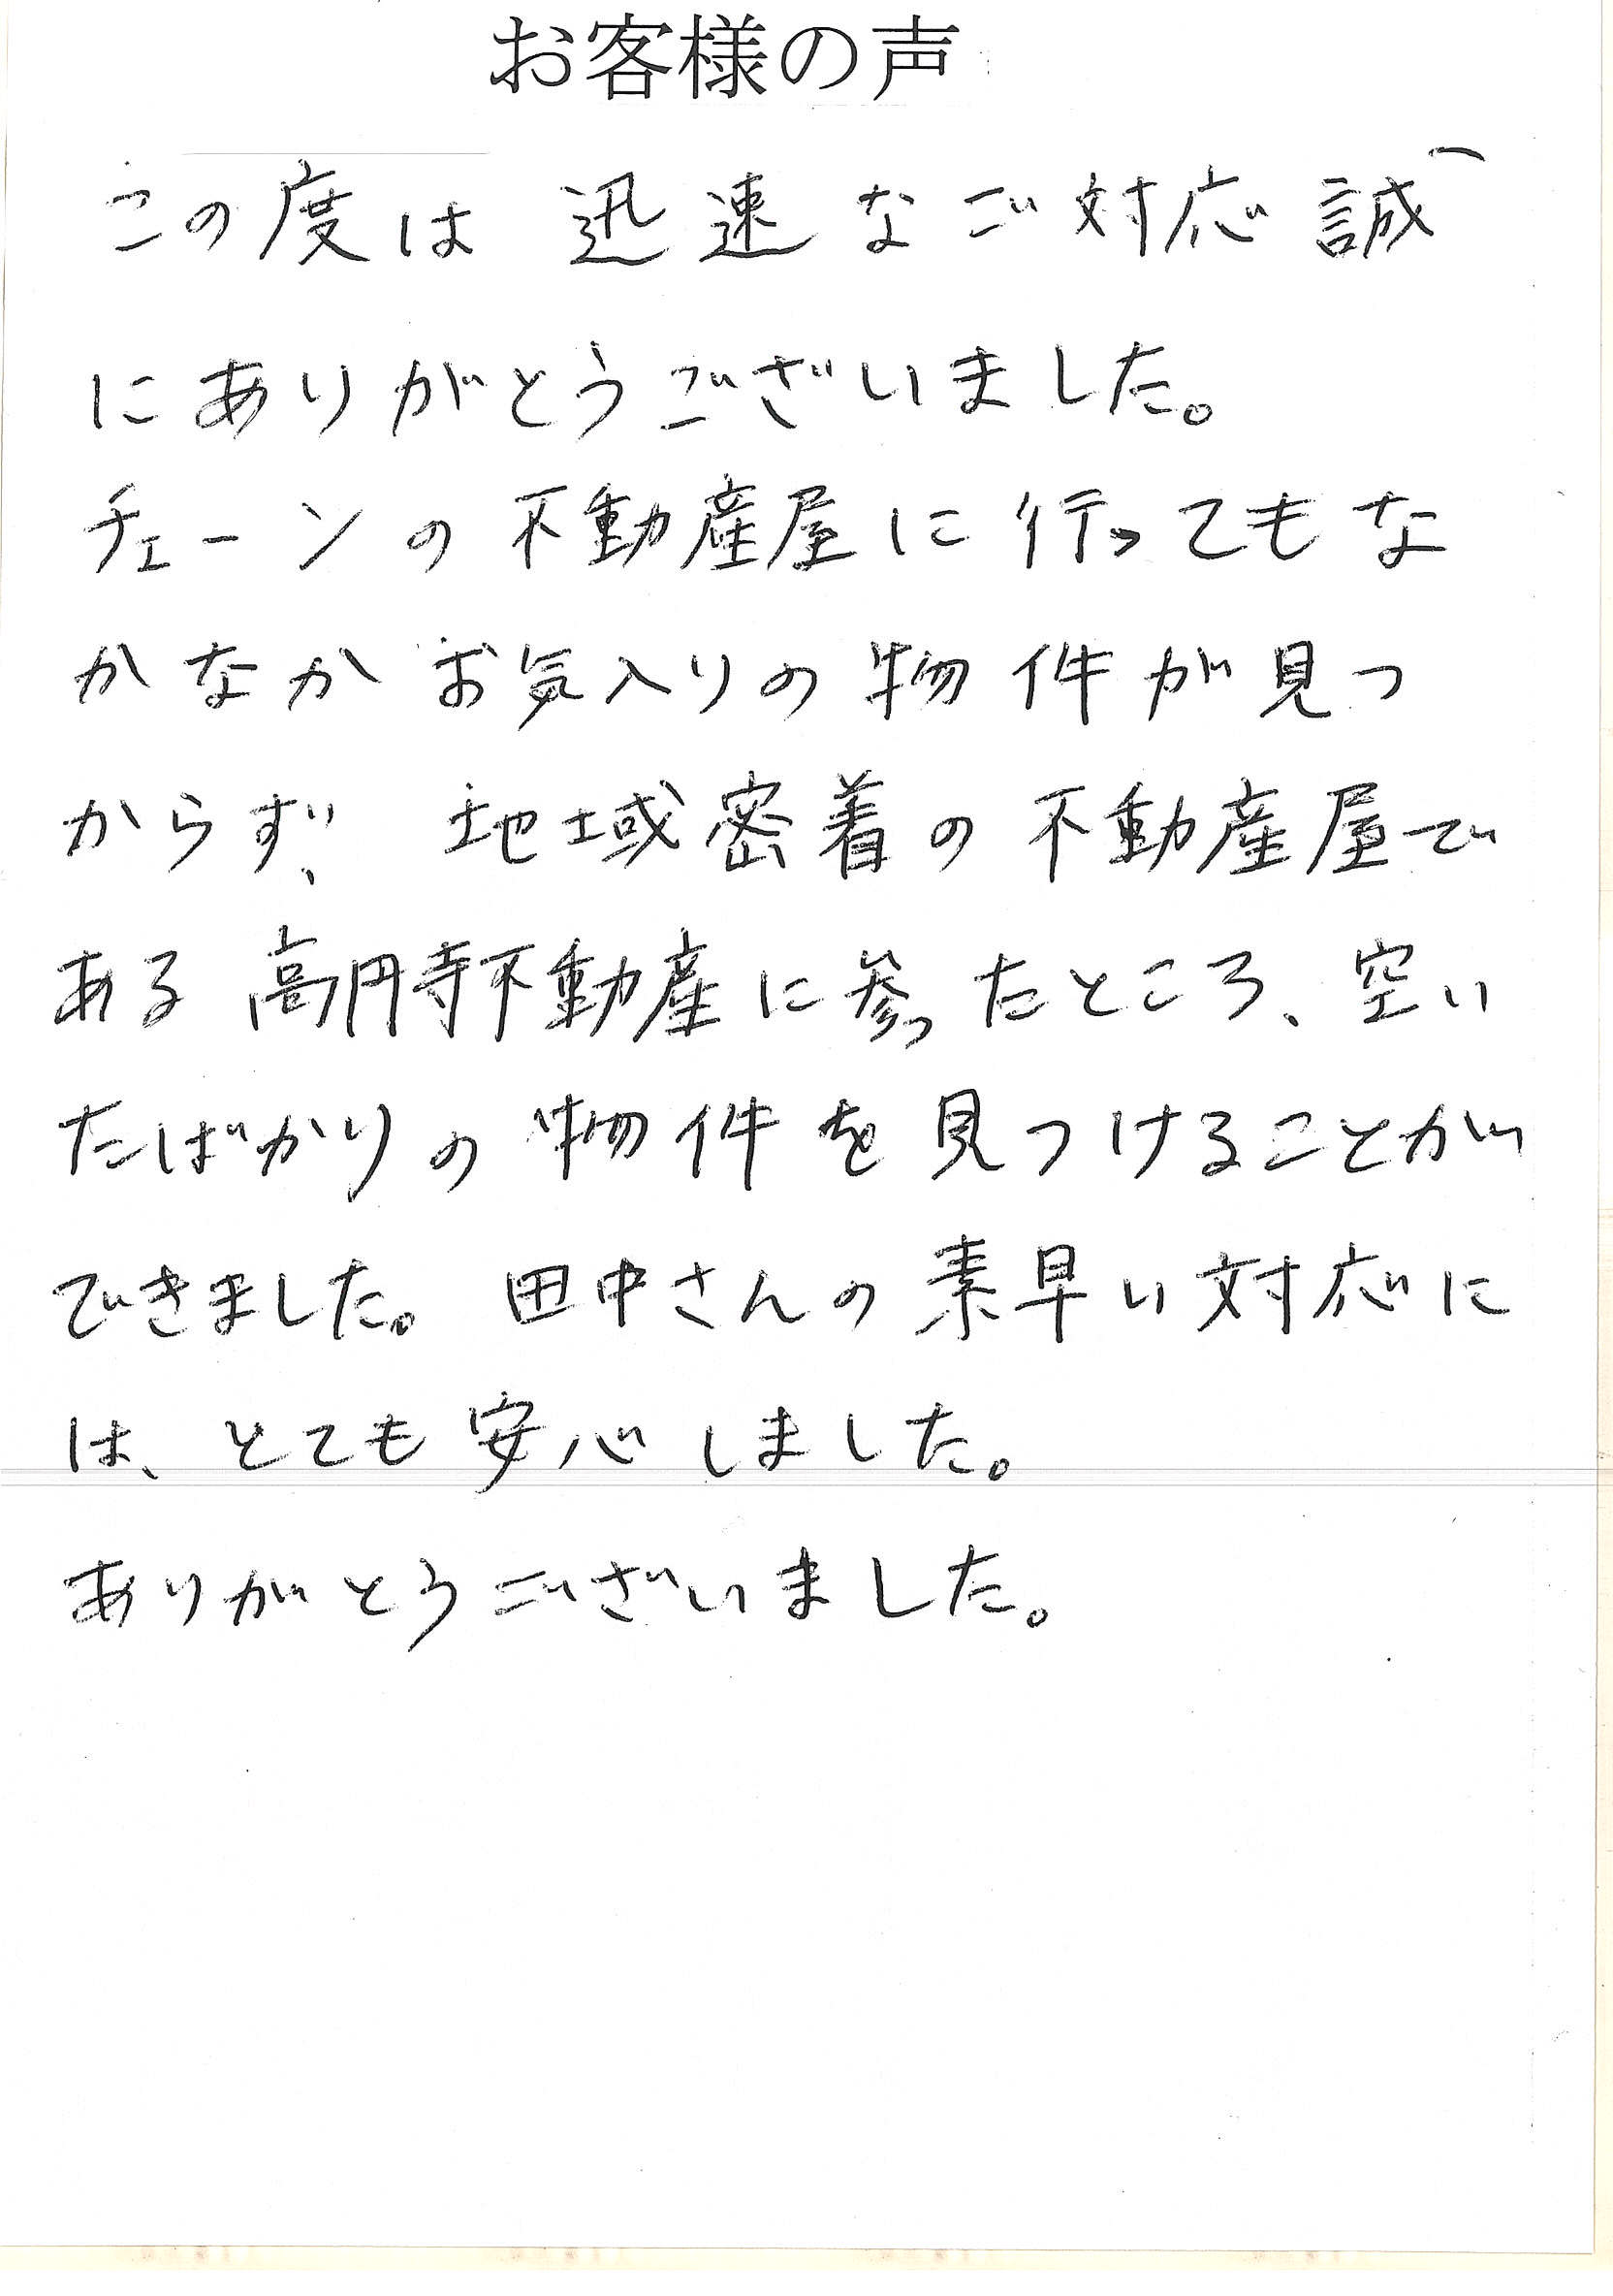 お客様の声
この度は迅速なご対応誠
にありがとうございました。
チェーンの不動産屋に行ってもな
かなかお気入りの物件が見つ
からず、地域密着の不動産屋で
ある高円寺不動産に参ったところ、空い
たばかりの物件を見つけることが
できました。田中さんの素早い対応に
は、とても安心しました。
ありがとうございました。